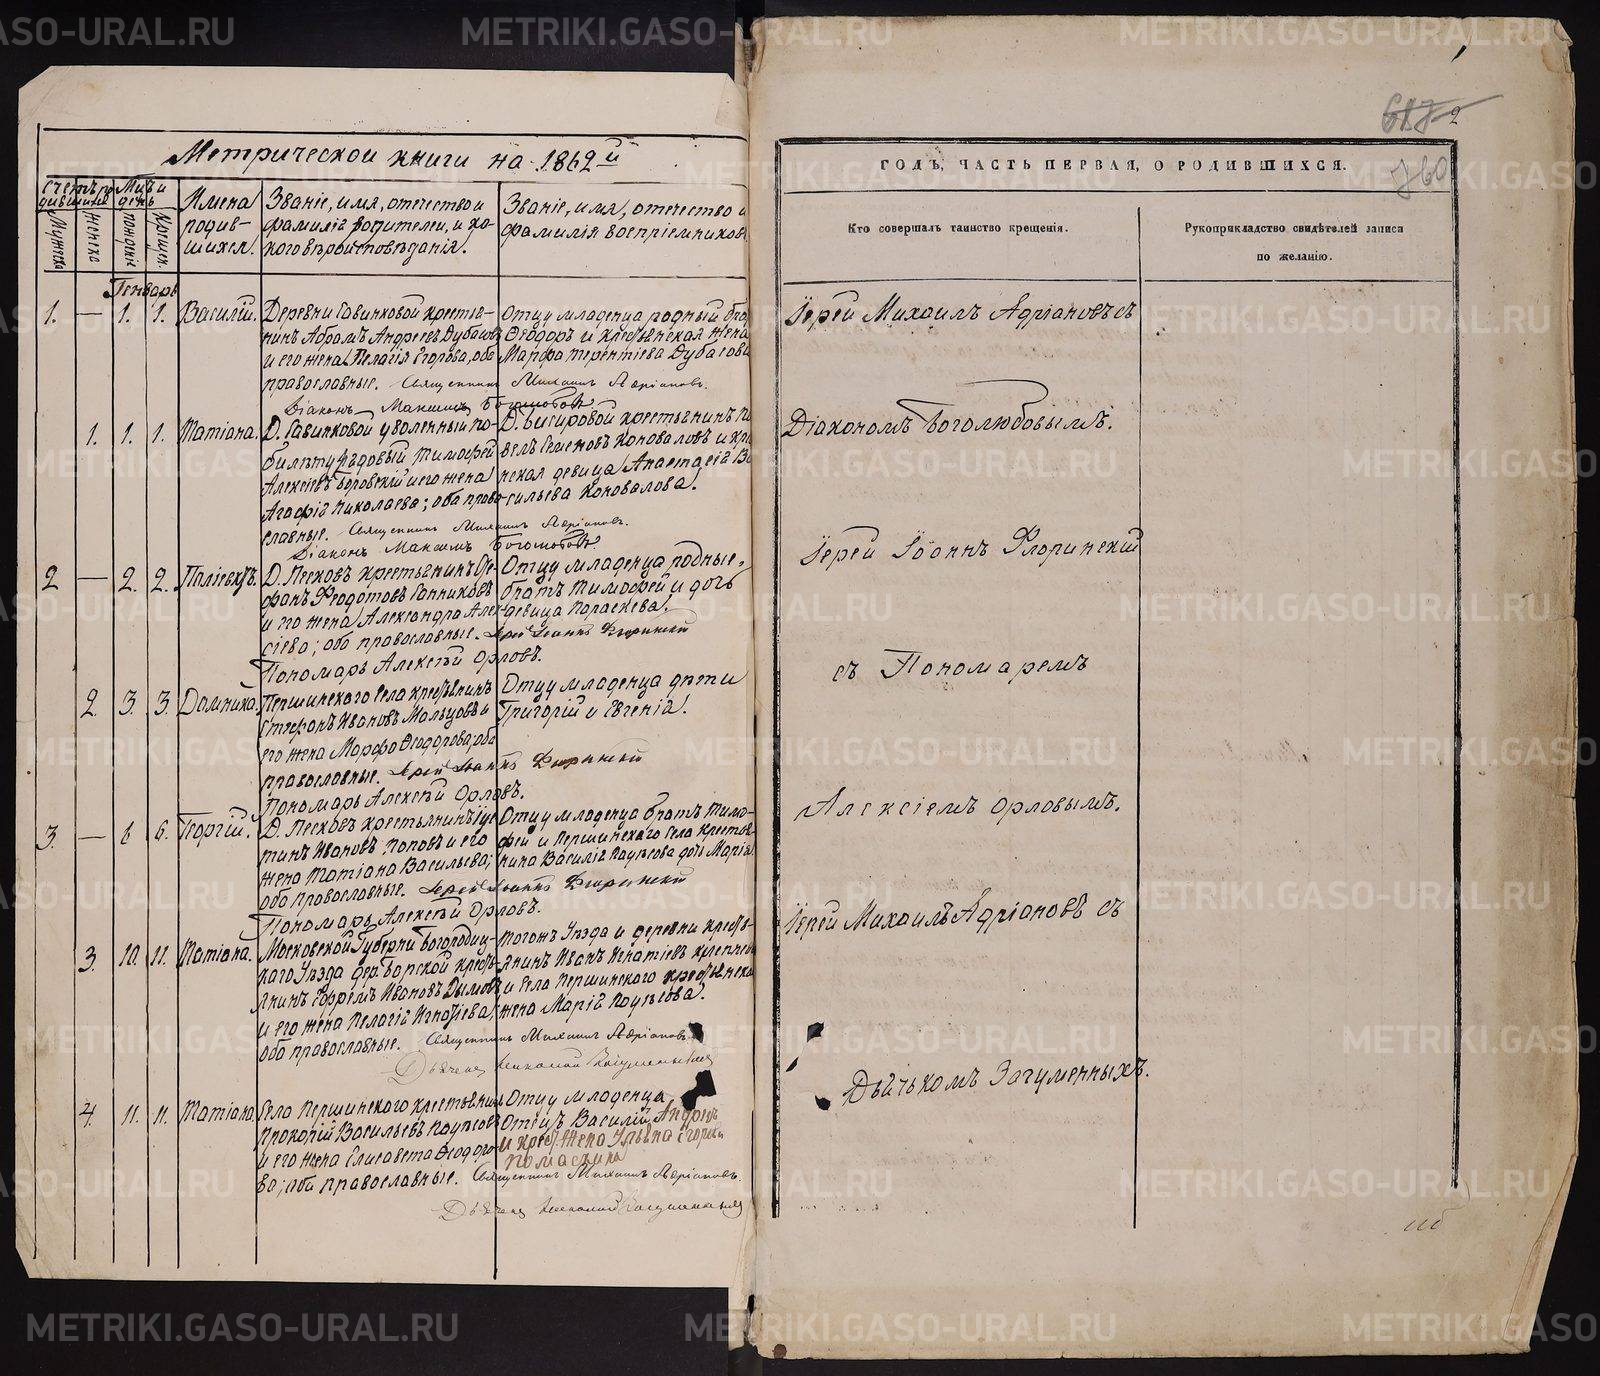 Метрической книги на 1862й
Счетъ родившихся
Мужеска
Женска
Мцъ и день
рожденія
Крещен.
Имена родившихся.
Званіе, имя, отечество и
фамилія родителей, и ка-
кого вѣроисповѣданія.
Званіе, имя, отечество и
фамилія воспріемниковъ
Генварь
1. — 1. 1. Василій.
Деревни Савинковой крестья-
нинъ Абрамъ Андреевъ Дубасовъ
и его жена Пелагія Егорова, оба
православные. Священникъ Михаилъ Адріановъ.
Діаконъ Максимъ Боголюбовъ
Отцу младенца родный бра
Ѳеодоръ и крестьянская жена
Марфа Терентіева Дубасова
1. 1. 1. Татіана.
Д. Савинковой уволенный по-
билету рядовый Тимофей
Алексіевъ Боровскій и его жена
Агафія Николаева; оба право-
славные. Священникъ Михаилъ Адріановъ.
Діаконъ Максимъ Боголюбовъ.
крестьянинъ
велъ Семеновъ Коноваловъ и кре
нская девица Анастасія Ва
сильева Коновалова.
2 — 2. 2.
Д. Песковъ крестьянинъ Сте-
фанъ Феодотовъ
и его жена Александра Алек-
сіева; оба православные. Іерей Іоаннъ Флоринскій
Пономарь Алексѣй Орловъ.
Отцу младенца родные
братъ Тимофей и дочь
девица Параскева.
2. 3. 3. Домника.
Першинскаго Села крестьянинъ
Стефанъ Ивановъ Мальцовъ и
его жена Марфа Ѳеодорова, оба
православные. Іерей Іоаннъ Флоринскій
Пономарь Алексѣй Орловъ.
Отцу младенца дѣти
Григорій и Евгенія.
3. — 6 6. Георгій.
Д. Песковъ крестьянинъ Іус
тинъ Ивановъ Поповъ и его
жена Татіана Васильева;
оба православные. Іерей Іоаннъ Флоринскій
Пономарь Алексѣй Орловъ.
Отцу младенца братъ Тимо-
фей и Першинскаго Села крестья-
нина Василія Паузсова дочь Марія.
3. 10. 11. Татіана.
Московской Губерніи Богородиц-
каго Уѣзда дер. Борской кресть-
янинъ Ефремъ Ивановъ Дымовъ
и его жена Пелагія Игнатіева,
оба православные. Священникъ Михаилъ Адріановъ
Дьячекъ Николай Загуменныхъ
Тогожъ Уѣзда и деревни кресть-
янинъ Иванъ Игнатіевъ
и Села Першинскаго крестьянска
жена Марія Паузсова.
4. 11. 11. Татіана.
Села Першинскаго крестьянинъ
Прокопій Васильевъ Паузсовъ
и его жена Елисавета Ѳеодоро-
ва; оба православные. Священникъ Михаилъ Адріановъ.
Дьячекъ Николай Загуменныхъ
Отцу младенца
Отецъ Василій Андреевъ
и крест. жена Ульяна Егорова
687 2
760
ГОДЪ, ЧАСТЬ ПЕРВАЯ, О РОДИВШИХСЯ.
Кто совершалъ таинство крещенія.
Рукоприкладство свидѣтелей записи
по желанію.
Іерей Михаилъ Адріановъ съ
Діакономъ Боголюбовымъ.
Іерей Іоаннъ Флоринскій
съ Пономаремъ
Алексіемъ Орловымъ.
Іерей Михаилъ Адріановъ съ
Дьячкомъ Загуменныхъ.
METRIKI.GASO-URAL.RU